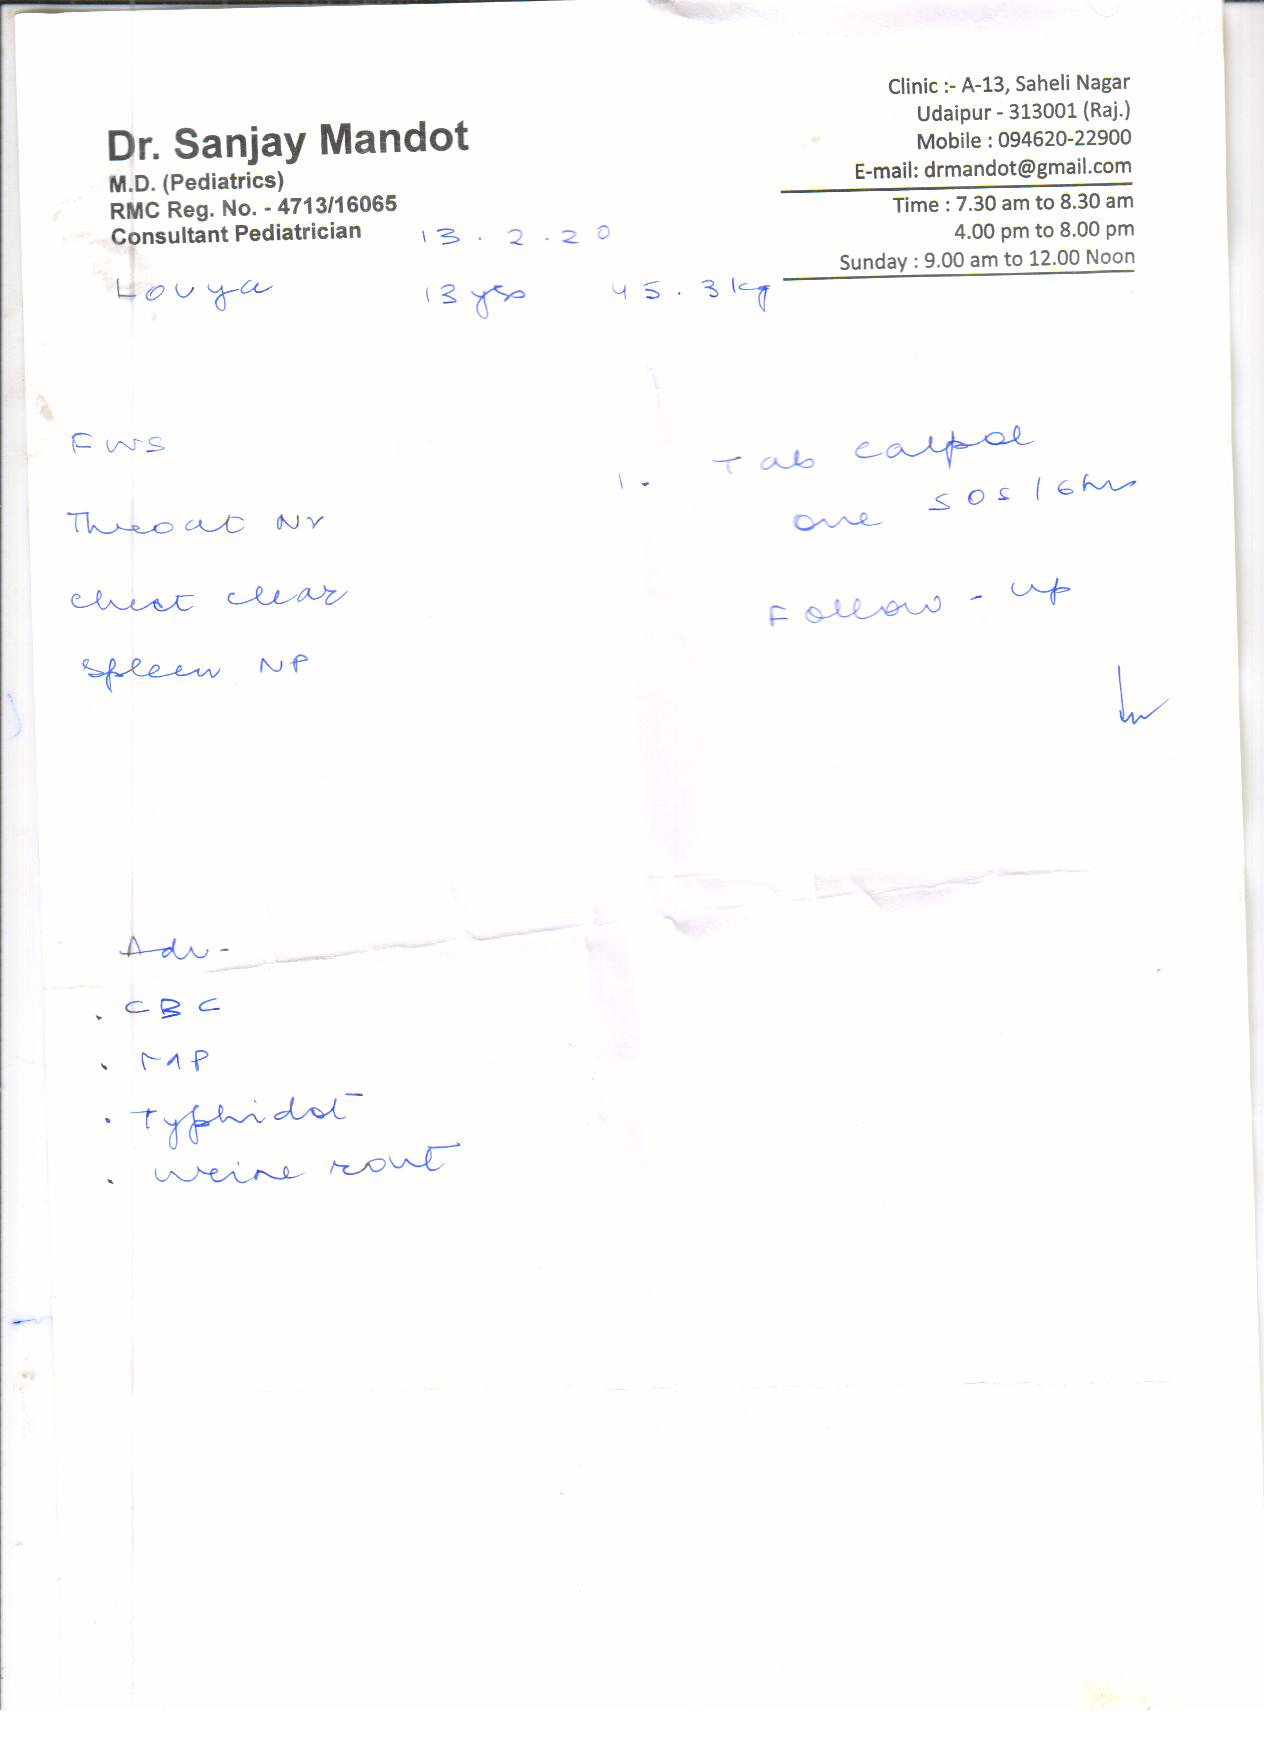 Dr. Sanjay Mandot
M.D. (Pediatrics)
RMC Reg. No. - 4713/16065
Consultant Pediatrician
Clinic :- A-13, Saheli Nagar
Udaipur - 313001 (Raj.)
Mobile : 094620-22900
E-mail: drmandot@gmail.com
Time : 7.30 am to 8.30 am
4.00 pm to 8.00 pm
Sunday : 9.00 am to 12.00 Noon
13.2.20
Louya 13 yrs 45.3 kg
FWS
Throat Nr
chest clear
Spleen NP
1. Tab calpol
one SOS / 6hr
Follow-up
Adv-
. CBC
. MP
. Typhidot
. urine rout